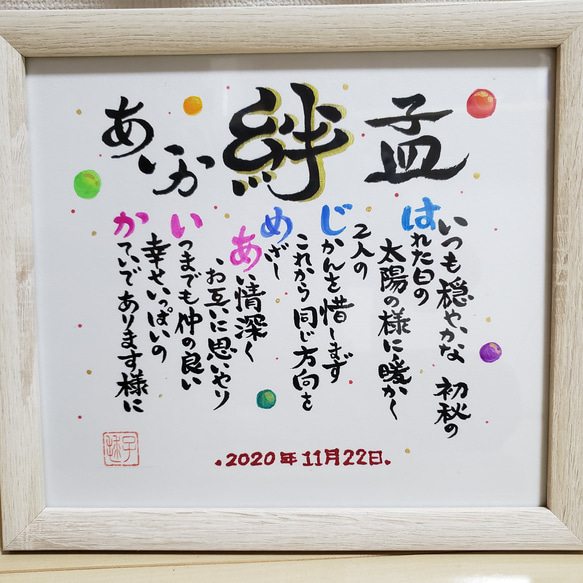 孟
絆
あいか
いつも穏やかな 初秋の
はれた日の
太陽の様に暖かく
2人の
じかんを惜しまず
これから同じ方向を
めざし
あい情深く
、お互いに思いやり
いつまでも仲の良い
幸せいっぱいの
かていであります様に
.2020年11月22日.